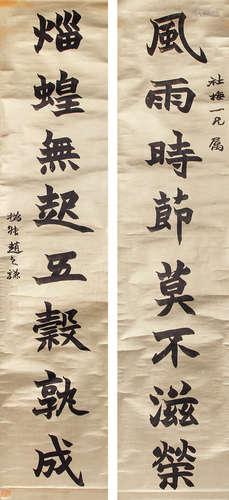 風雨時節莫不滋榮
社梅一兄屬
蝗無起五穀孰成
撝叔趙之謙